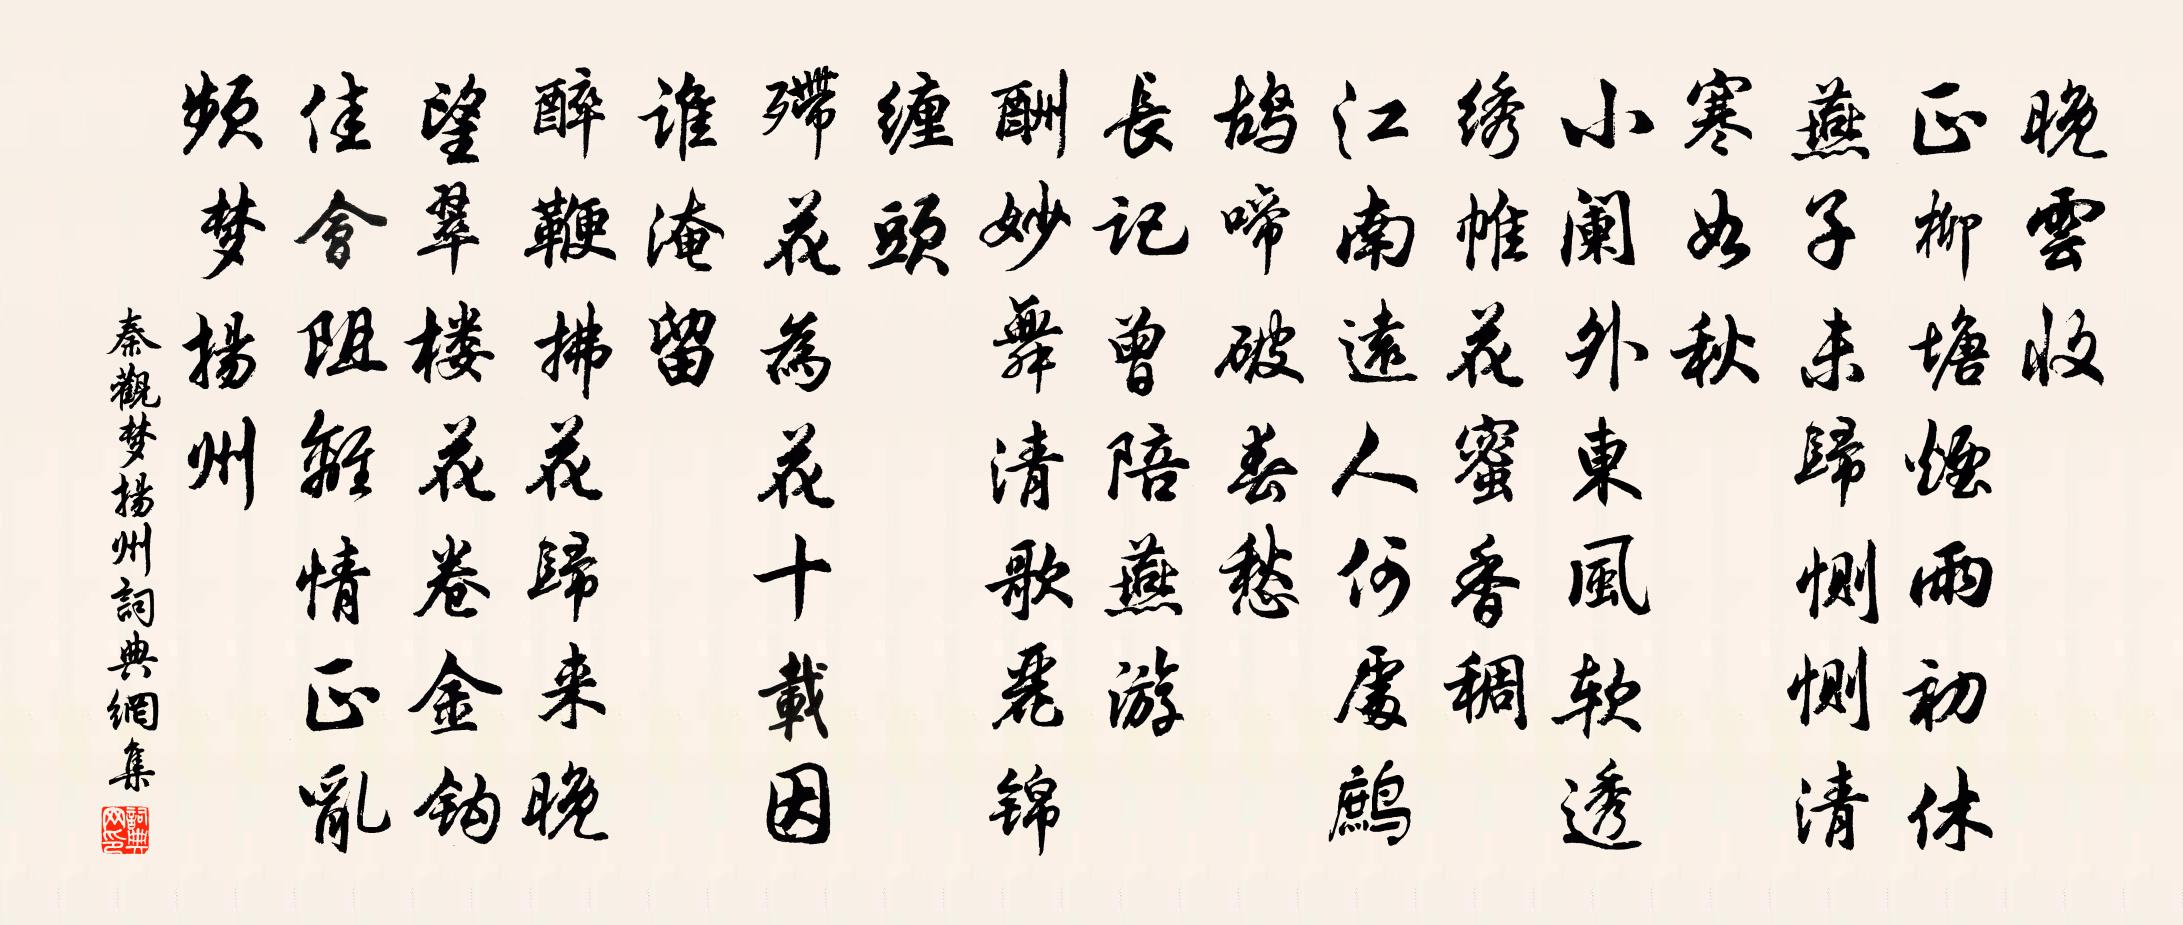 晚雲收
正柳塘煙雨初休
燕子未歸惻惻清
寒如秋
小阑外東風软透
绣帷花蜜香稠
江南遠人何處鷓
鸪啼破春愁
長记曾陪燕游
酬妙舞清歌麗锦
缠頭
殢花為花十載因
谁淹留
醉鞭拂花歸来晚
望翠楼花卷金钩
佳會阻離情正亂
频梦揚州
秦觀梦揚州詞典網集
詞典網印